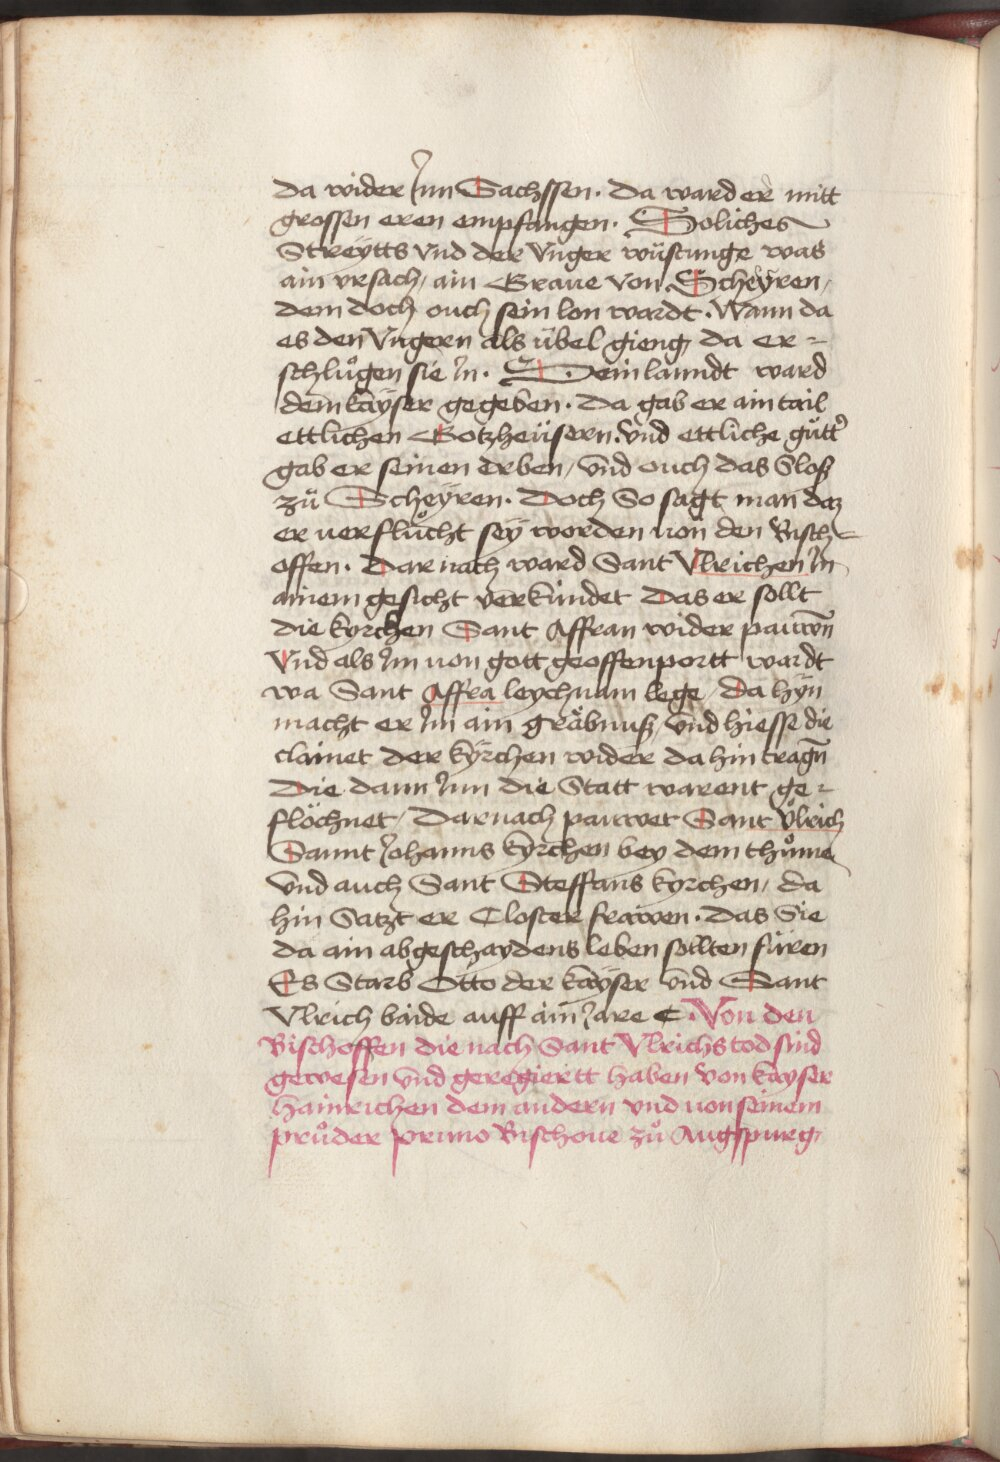 da wider Inn Sachssen. Da ward er mitt
grossen eren empfangen. Soliches
Streÿtts vnd der Vnger wüstunge was
ain vrsach, ain Graue von Scheÿren,
dem doch ouch sein lon wardt. Wann da
es den Vngern als übel gieng, da er-
schlůgen sie In. Sein lanndt ward
dem kaÿser gegeben. Da gab er ain tail
ettlichen Gotzheüsern. vnd ettliche gůtt'
gab er seinen erben, vnd ouch das Sloß
zů Scheÿren. Doch So sagt man daz
er verflůcht seÿ worden von den Bisch-
offen. Dar nach ward Sant Vlrichen In
ainem gesicht verkündet Das er sollt
die kyrchen Sant Affran wider pauwñ
Vnd als Im von gott geoffenportt wardt
wa Sant Affra leychnam lege, Da hÿn
macht er Im ain gräbnuß, vnd hiesse die
clainet der kÿrchen wider da hin tragñ
Die dann Inn die Statt warent ge-
flöchnet, Darnach pauwet Sant Vͦlrich
Sannt Johanns kÿrchen bey dem thůme
vnd auch Sant Steffans kyrchen, da
hin Satzt er Closter frawen. Das Sie
da ain abgeschaydens leben sollten füren
Es Starb Otto der kaÿser vnd Sant
Vlrich baide auff ain Jare C. Von den
Bischoffen die nach Sant Vlrichs tod sind
gewesen vnd geregiertt haben von kaÿser
hainrichen dem andern vnd von seinem
průder pruno Bischoue zů Augspurg,